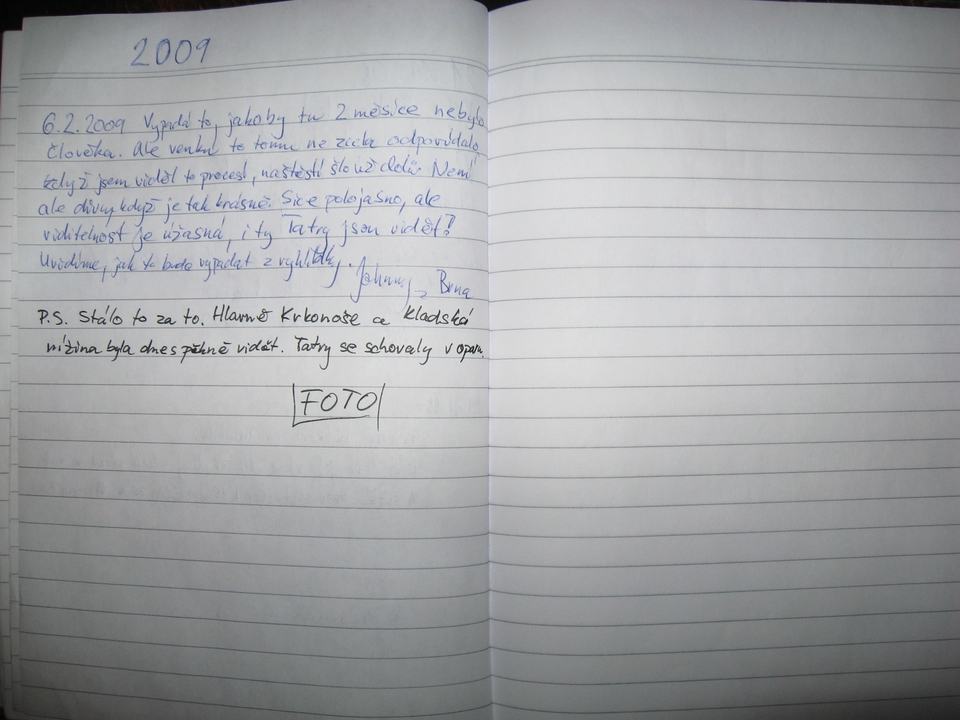 2009
6.2.2009 Vypadá to, jakoby tu 2 měsíce nebylo
človéka. Ale venku to tomu ne zcela odpovídalo,
když jsem viděl to procesí, naštěstí šlo už dolů. Není
ale divu, když je tak krásně. Sice polojasno, ale
viditelnost je úžasná, i ty Tatry jsou vidět?
Uvidíme, jak to bude vypadat z vyhlídky.
Johnny z Brna
P.S. Stálo to za to. Hlavně Krkonoše a kladská
nížina byla dnes pěkně vidět. Tatry se schovaly v oparu.
FOTO